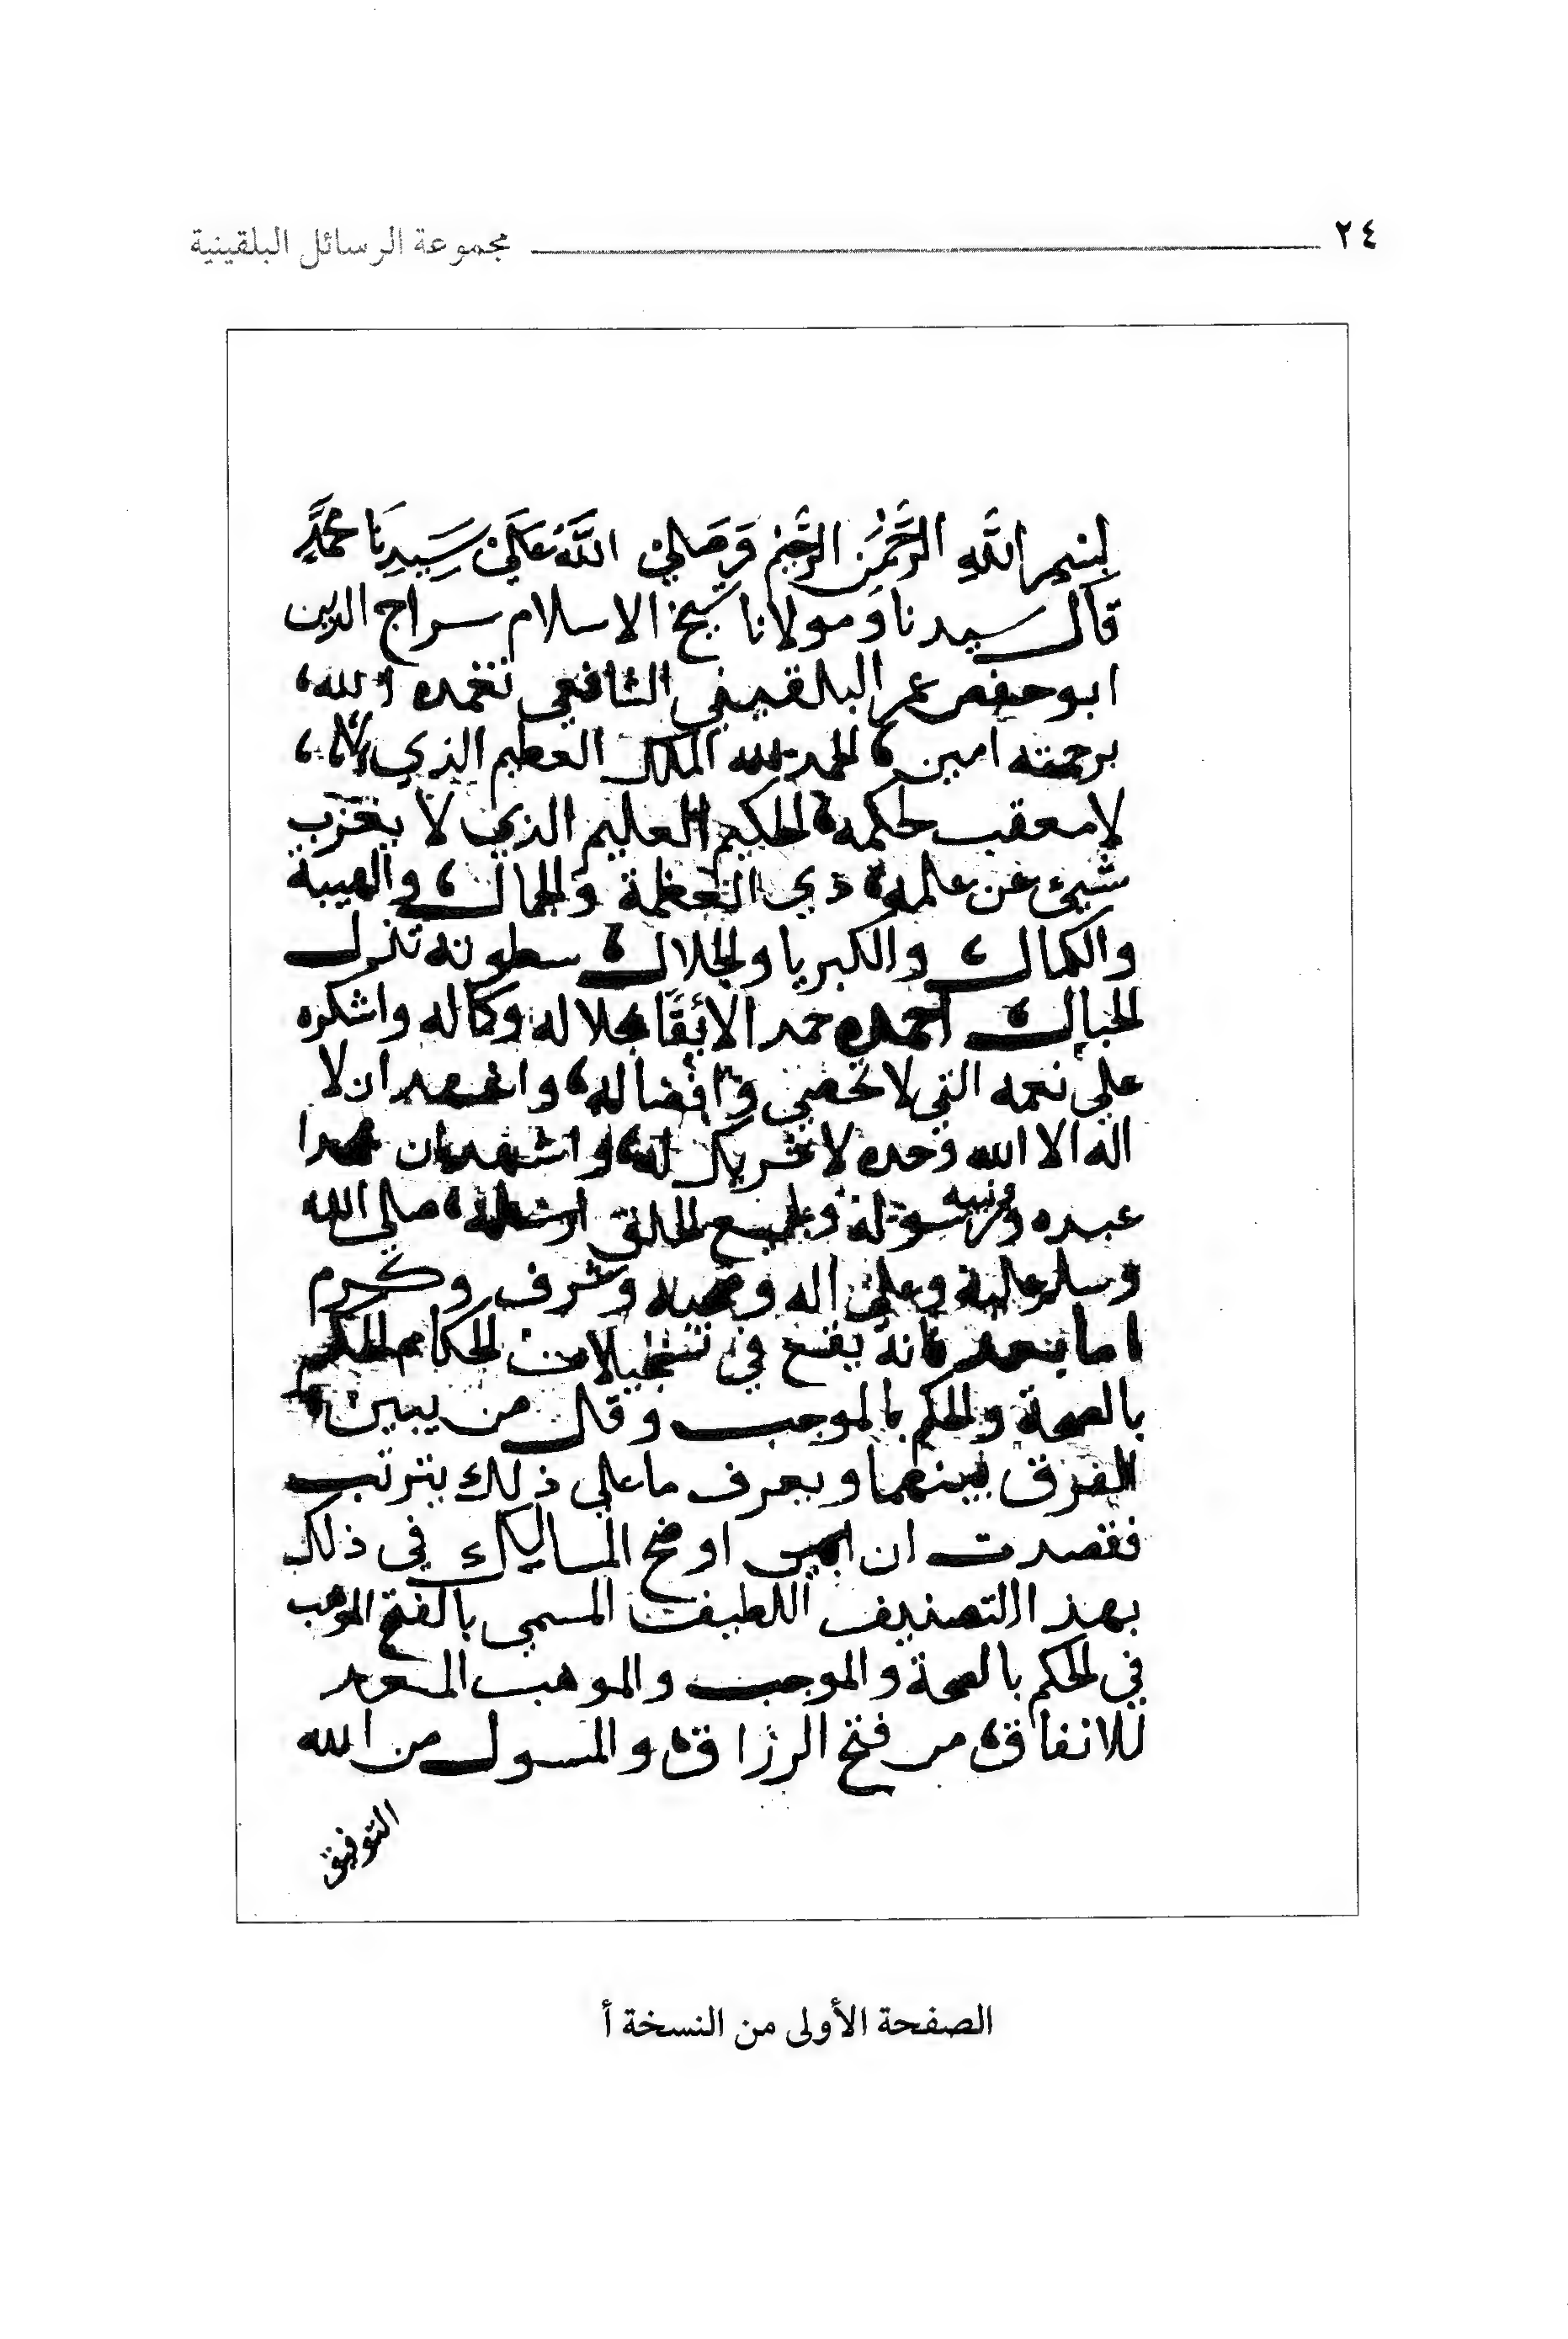 ٢٤ مجموعة الرسائل البلقينية
بِسْمِ اللَّهِ الرَّحْمَنِ الرَّحِيمِ وَصَلَّى اللَّهُ عَلَى سَيِّدِنَا مُحَمَّدٍ
قال سيدنا ومولانا شيخ الاسلام سراج الدين
ابو حفص عمر البلقيني الشافعي تغمده الله،
برحمته امين، الحمد لله الملك العظيم الذي
لا معقب لحكمه، الحكيم العليم الذي لا يعزب
شيئ عن علمه، ذي العظمة والجمال، والهيبة
والكمال، والكبريا والجلال، سطوته تنزل
الجبال، احمده حمدا لائقا بجلاله وكماله واشكره
على نعمه التي لا تحصى وافضاله، واشهد ان لا
اله الا الله وحده لا شريك له، واشهد ان محمدا
عبده ونبيه ورسوله ولجميع الخلق ارسله، صلى الله
وسلم عليه وعلى اله وصحبه وشرف وكرم
اما بعد فانه يقع في تسجيلات الحكام الحكم
بالصحة والحكم بالموجب وقل من يبين
الفرق بينهما ويعرف ما على ذلك يترتب
فقصدت ان ابين اوضح المساليك في ذلك
بهذا التصنيف اللطيف المسمى بالفتح الموهب
في الحكم بالصحة والموجب والموهب المعد
للانفاق، من فتح الرزاق، والمسول من الله
التوفيق
الصفحة الأولى من النسخة أ